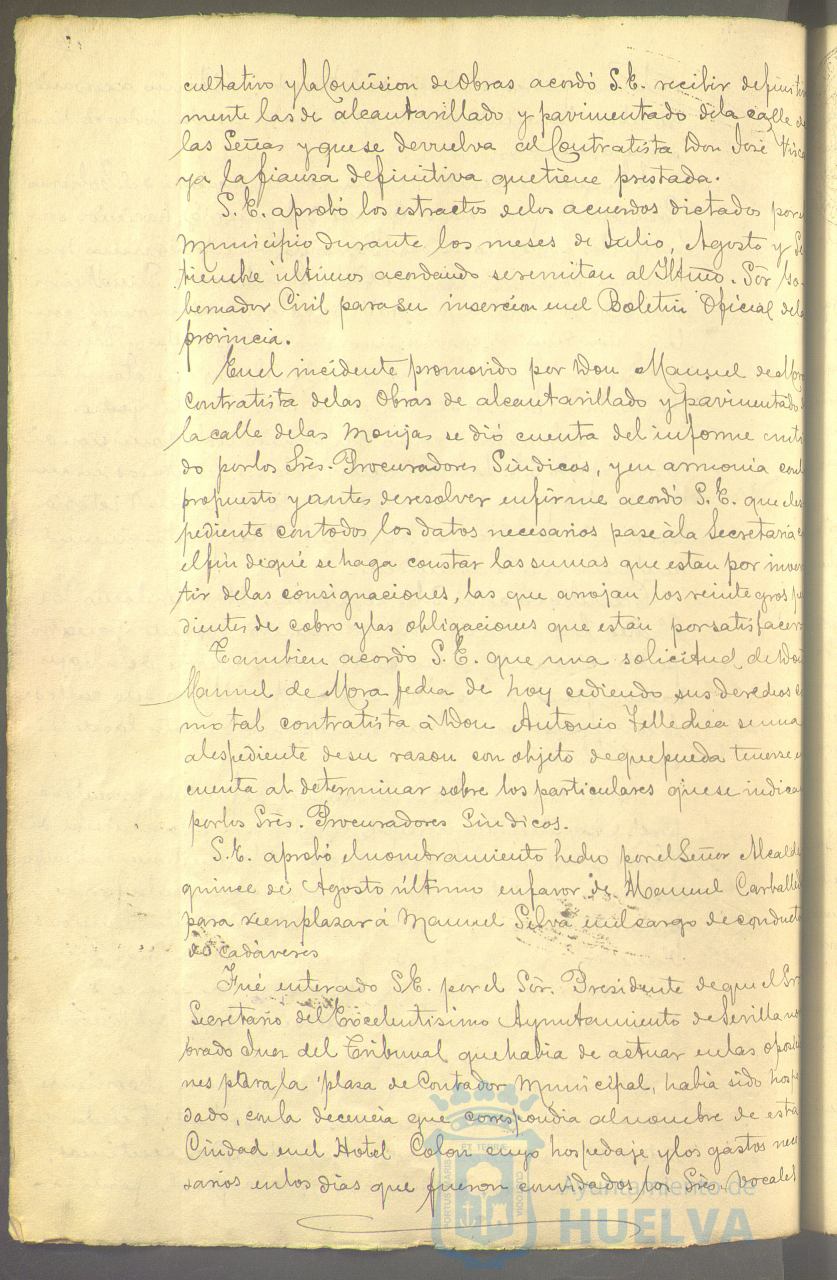 cultativo y la Comision de Obras acordó S.E. recibir definiti
mente las de alcantarillado y pavimentado de la calle de
las Señas y que se devuelva al Contratista Don José Visca
ya la fianza definitiva que tiene prestada.
S.E. aprobó los estractos de los acuerdos dictados por e
Municipio durante los meses de Julio, Agosto y Se
tiembre últimos acordando se remitan al Iltmo. Sor Go-
bernador Civil para su insercion en el Boletin Oficial de la
provincia.
En el incidente promovido por Don Manuel de Mora
contratista de las Obras de alcantarillado y pavimentado d
la calle de las Monjas se dió cuenta del informe emiti
do por los Sres. Procuradores Sindicos, y en armonia con l
propuesto y antes de resolver en firme acordó S.E. que el es
pediente con todos los datos necesarios pase à la Secretaria c
el fin de que se haga constar las sumas que estan por inver
tir de las consignaciones, las que arrojan los reintegros pe
dientes de cobro y las obligaciones que están por satisfacer.
Tambien acordó S.E. que una solicitud de Don
Manuel de Mora fecha de hoy cediendo sus derechos c
mo tal contratista à Don Antonio Tellechea se una
al espediente de su razon con objeto de que pueda tenerse e
cuenta al determinar sobre los particulares que se indica
por los Sres. Procuradores Sindicos.
S.E. aprobó el nombramiento hecho por el Señor Alcalde
quince de Agosto último en favor de Manuel Carballo
para reemplazar à Manuel Silva en el cargo de conducto
de cadáveres
Fué enterado S.E. por el Sor. Presidente de que el Sr
Secretario del Excelentisimo Ayuntamiento de Sevilla no
brado Juez del Tribunal que habia de actuar en las oposici
nes para la plaza de Contador Municipal, habia sido hospe
dado, con la decencia que correspondia al nombre de esta
Ciudad en el Hotel Colon cuyo hospedaje y los gastos nece
sarios en los dias que fueron convidados los Sres. Vocales
Ayuntamiento de
HUELVA